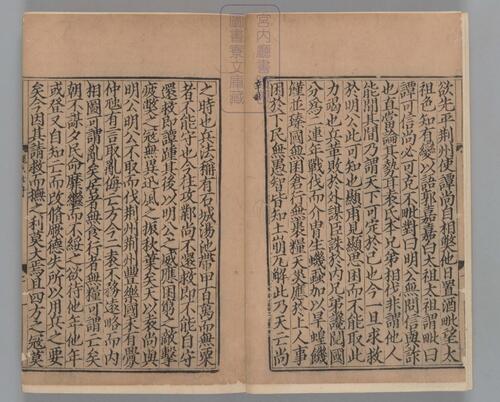 宮内廳
圖書寮文庫藏
欲先平荆州使譚尚自相弊他日置酒毗望太
祖色知有變以語郭嘉嘉白太祖太祖謂毗曰
譚可信尚必可克不毗對曰明公無問信與詐
也直當論其勢耳袁氏本兄弟相伐非謂他人
能間其間乃謂天下可定於己也今一旦求救
於明公此可知也顯甫見顯思困而不能取此
力竭也兵革敗於外謀臣誅於内兄弟讒鬩國
分為二連年戰伐而介冑生蟣蝨加以旱蝗饑
饉並臻國無囷倉行無裹糧天災應於上人事
困於下民無愚智皆知土崩瓦解此乃天亡尚
之時也兵法稱有石城湯池帶甲百萬而無粟
者不能守也今往攻鄴尚不還救即不能自守
還救即譚踵其後以明公之威應困窮之敵擊
疲弊之寇無異迅風之振秋葉矣天以袁尚與
明公明公不取而伐荆州荆州豐樂國未有釁
仲虺有言取亂侮亡方今二袁不務遠略而内
相圖可謂亂矣居者無食行者無糧可謂亡矣
朝不謀夕民命靡繼而不綏之欲待他年他年
或登又自知亡而改脩厥德失所以用兵之要
矣今因其請救而撫之利莫大焉且四方之寇莫